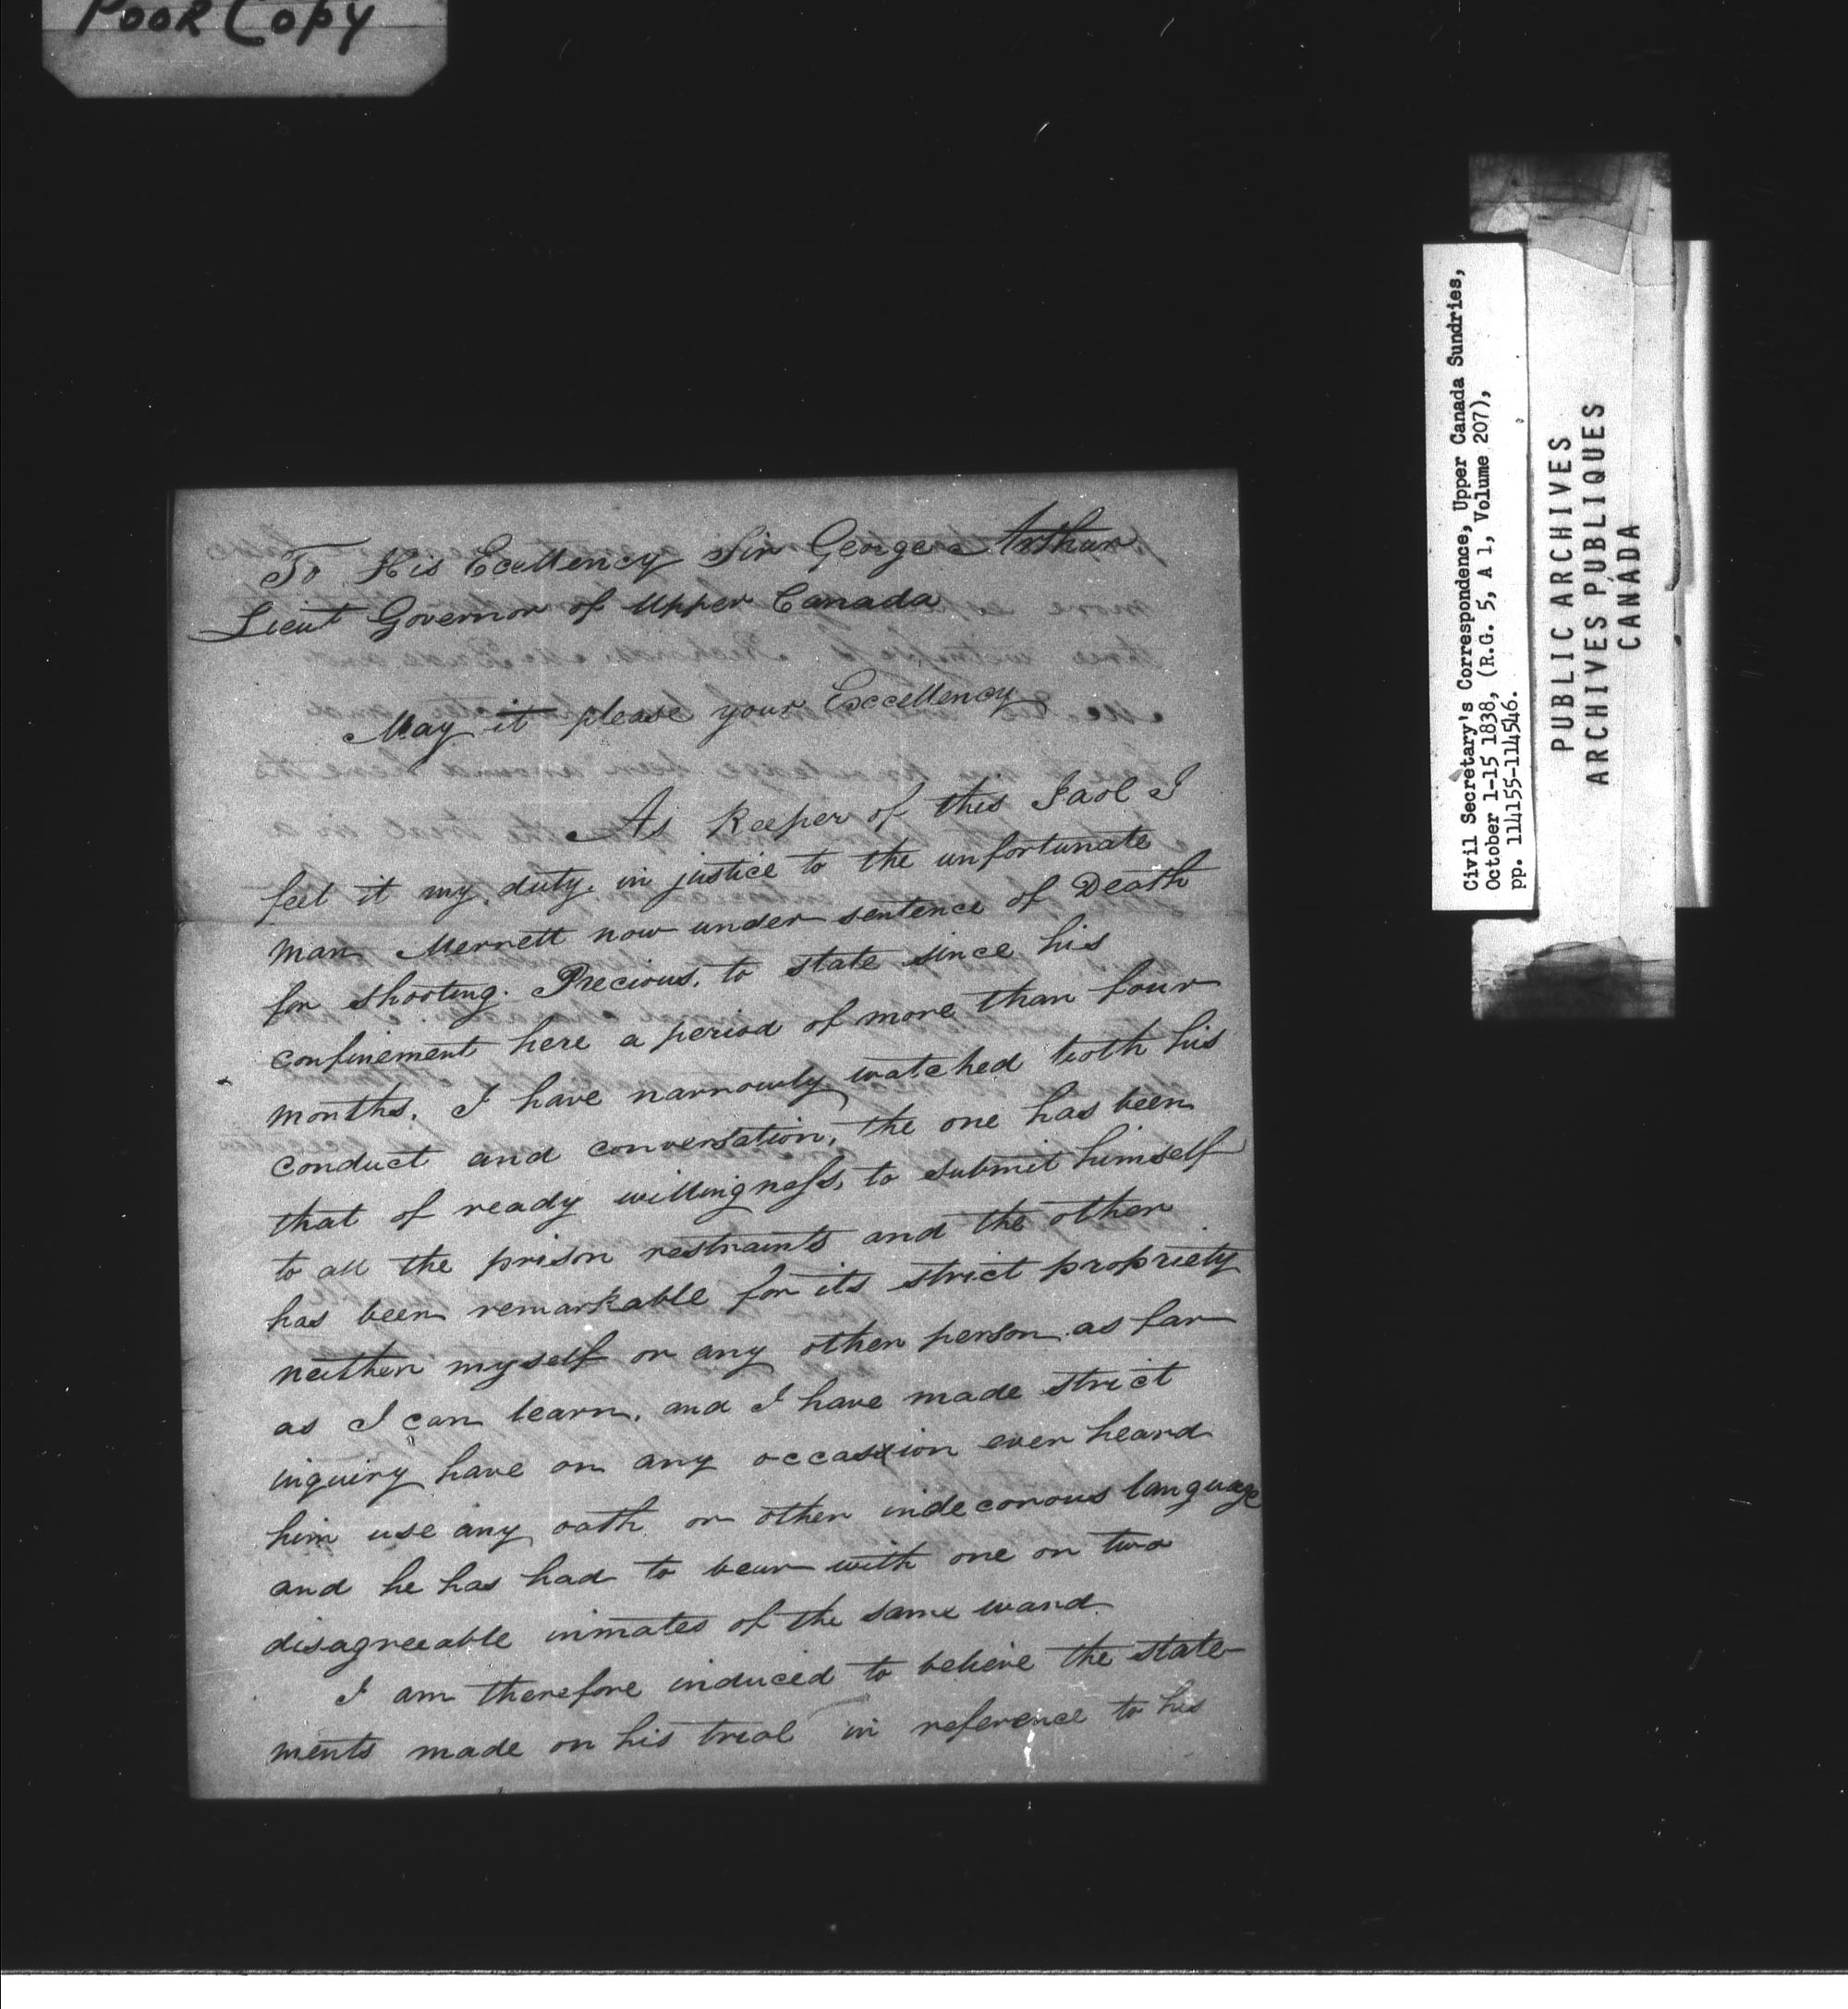 Poor Copy
To His Ecellency Sir George Arthur
Lieut Governor of Upper Canada
May it please your Excellency
As Keeper of this Jaol I
feel it my duty. in justice to the unfortunate
man Merrett now under sentence of Death
for shooting. Precious. to state since his
confinement here a period of more than four
months. I have narrowly watched both his
conduct and conversation, the one has been
that of ready willingness, to submit himself
to all the prison restraints and the other
has been remarkable for its strict propriety
neither myself or any other person as far
as I can learn. and I have made strict
inquiry have on any occassion ever heard
him use any oath or other indecorous language
and he has had to bear with one or two
disagreeable inmates of the same ward
I am therefore induced to believe the state
ments made on his trial in reference to his
Civil Secretary's Correspondence, Upper Canada Sundries,
October 1-15 1838, (R.G. 5, A 1, Volume 207),
pp. 114155-114546.
PUBLIC ARCHIVES
ARCHIVES PUBLIQUES
CANADA